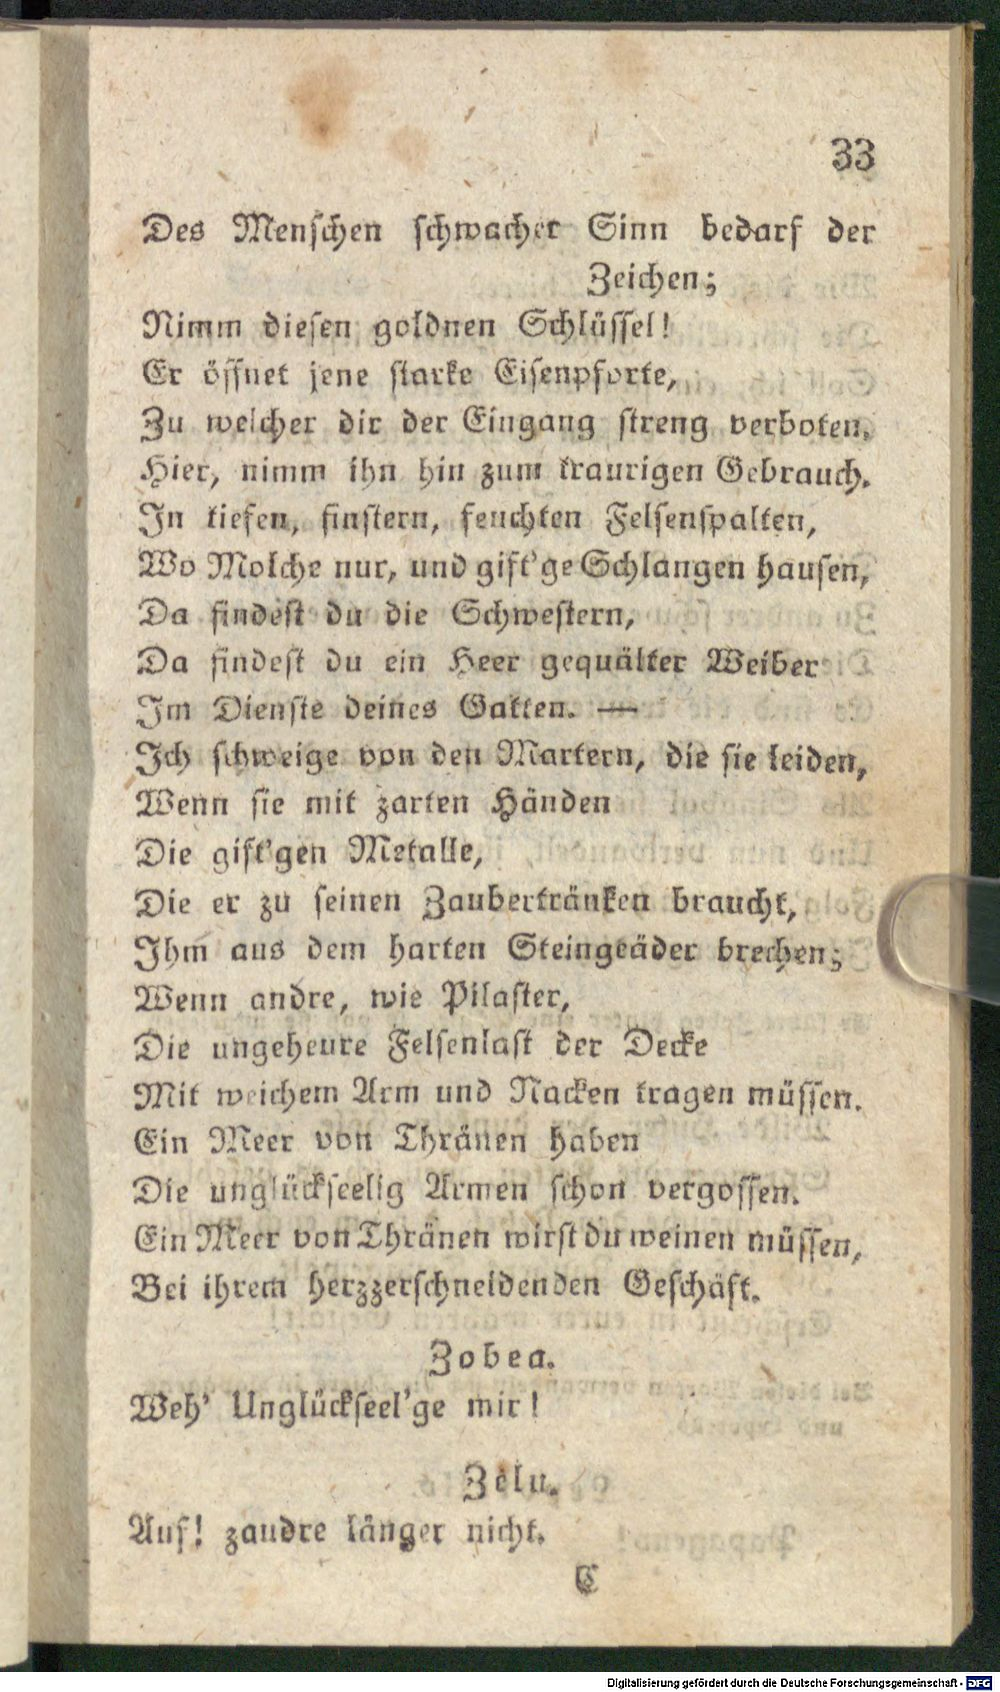 33
Des Menschen schwacher Sinn bedarf der
Zeichen;
Nimm diesen goldnen Schlüssel!
Er öffnet jene starke Eisenpforte,
Zu welcher dir der Eingang streng verboten.
Hier, nimm ihn hin zum traurigen Gebrauch.
In tiefen, finstern, feuchten Felsenspalten,
Wo Molche nur, und gift'ge Schlangen hausen,
Da findest du die Schwestern,
Da findest du ein Heer gequälter Weiber
Im Dienste deines Gatten. —
Ich schweige von den Martern, die sie leiden,
Wenn sie mit zarten Händen
Die gift'gen Metalle,
Die er zu seinen Zaubertränken braucht,
Ihm aus dem harten Steingeäder brechen;
Wenn andre, wie Pilaster,
Die ungeheure Felsenlast der Decke
Mit weichem Arm und Nacken tragen müssen.
Ein Meer von Thränen haben
Die unglückseelig Armen schon vergossen.
Ein Meer von Thränen wirst du weinen müssen,
Bei ihrem herzzerschneidenden Geschäft.
Zobea.
Weh' Unglückseel'ge mir!
Zelu.
Auf! zaudre länger nicht.
C
Digitalisierung gefördert durch die Deutsche Forschungsgemeinschaft - DFG